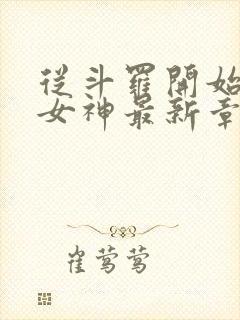 從斗羅開始
女神最新章
崔莺莺